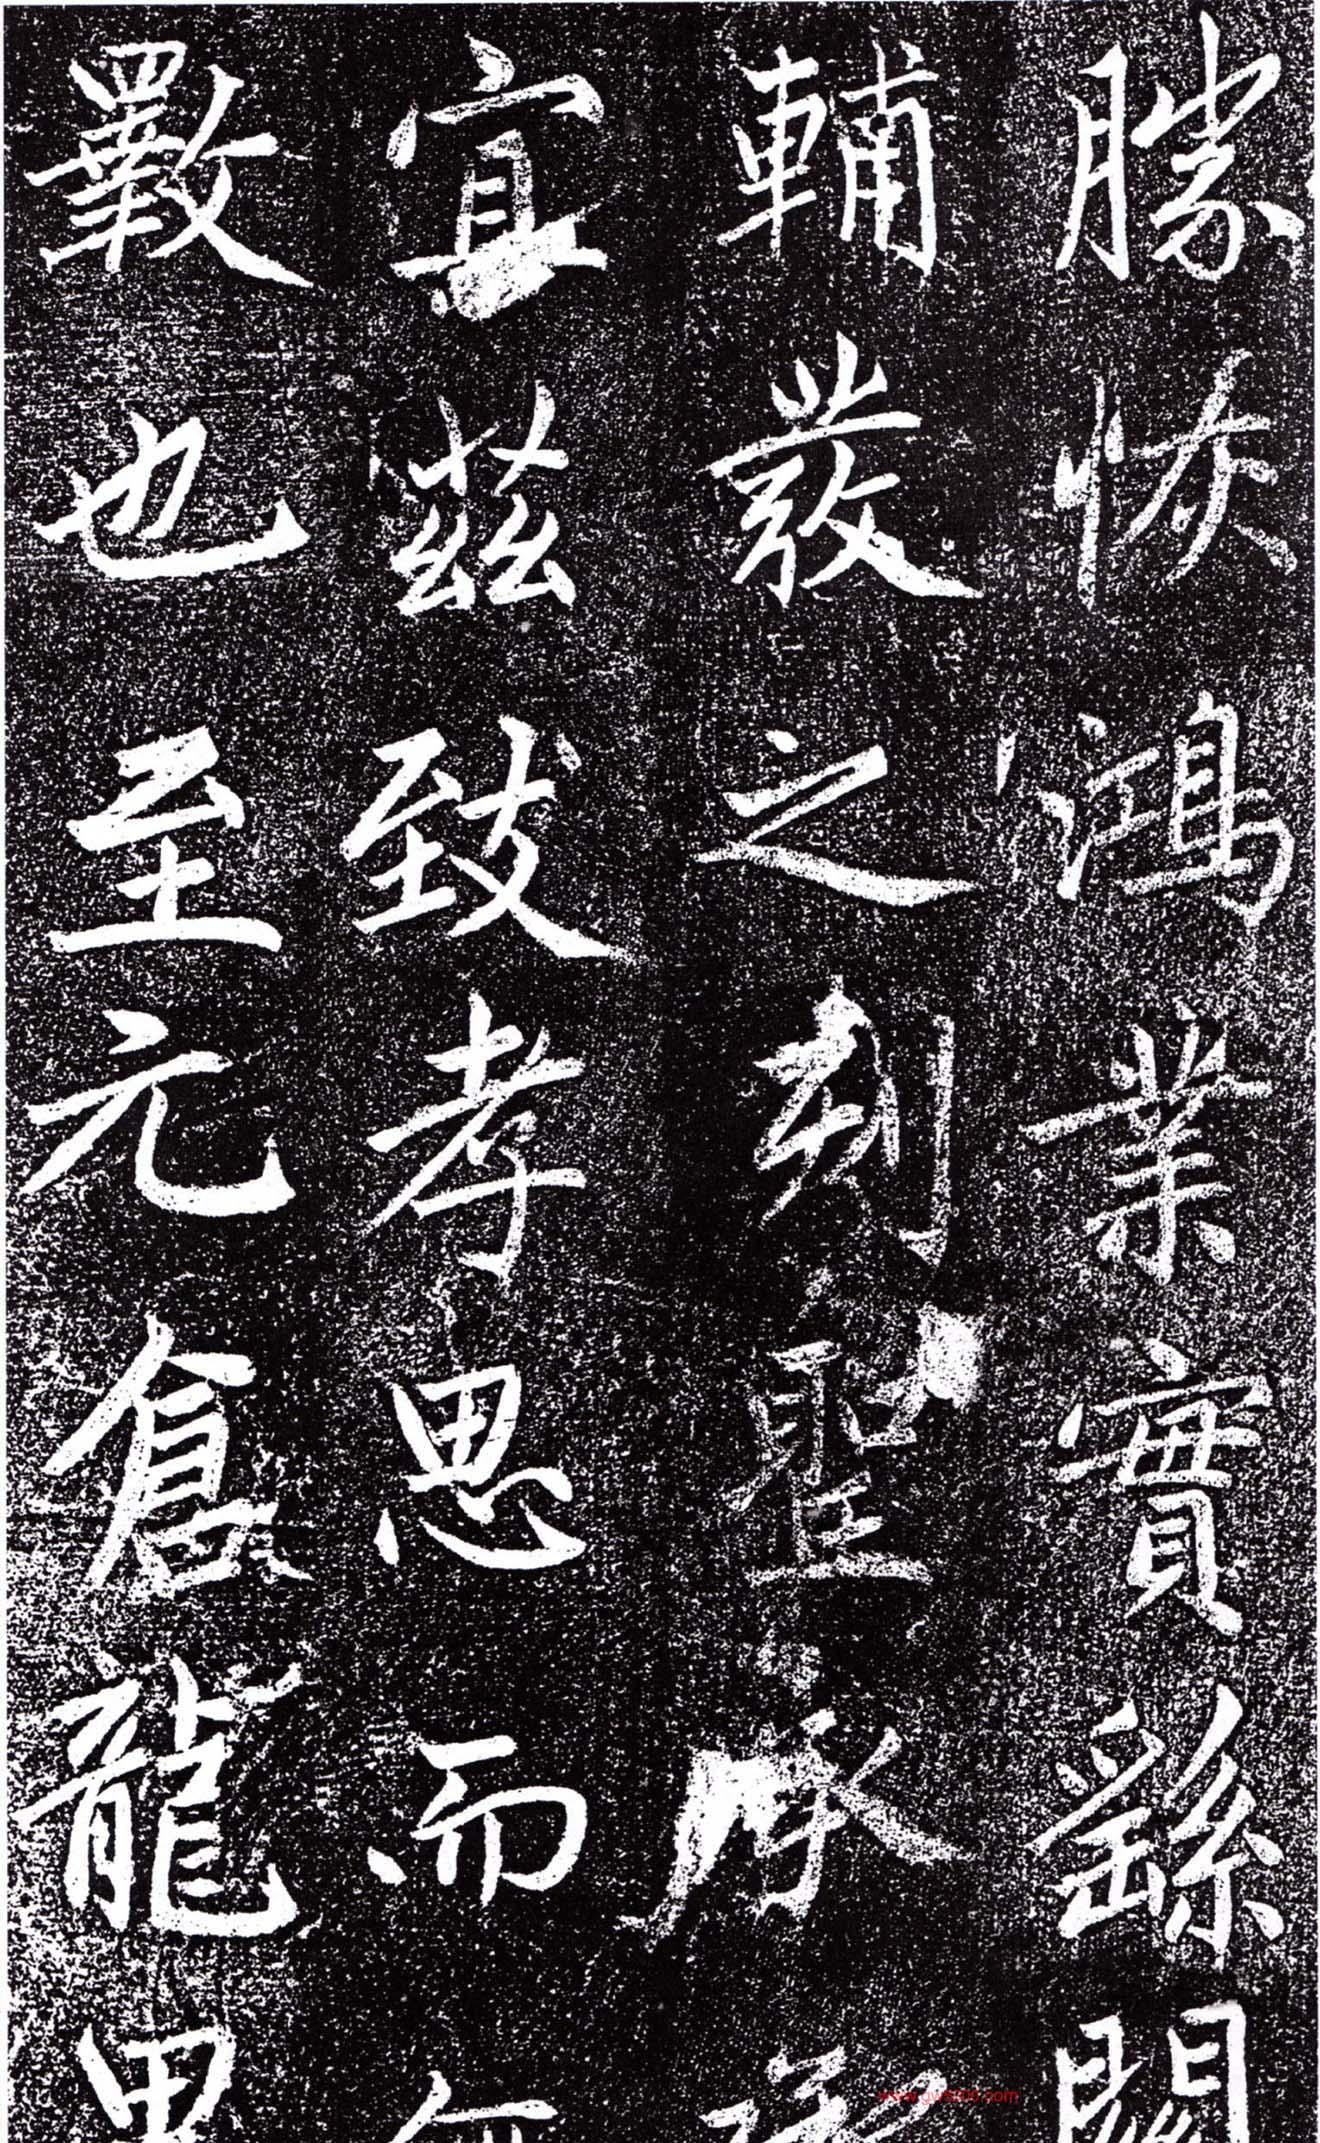 勝恢鴻業實繇闢
輔發之刻聖承
宜茲致孝思而
斁也至元倉龍
www.gw5000.com